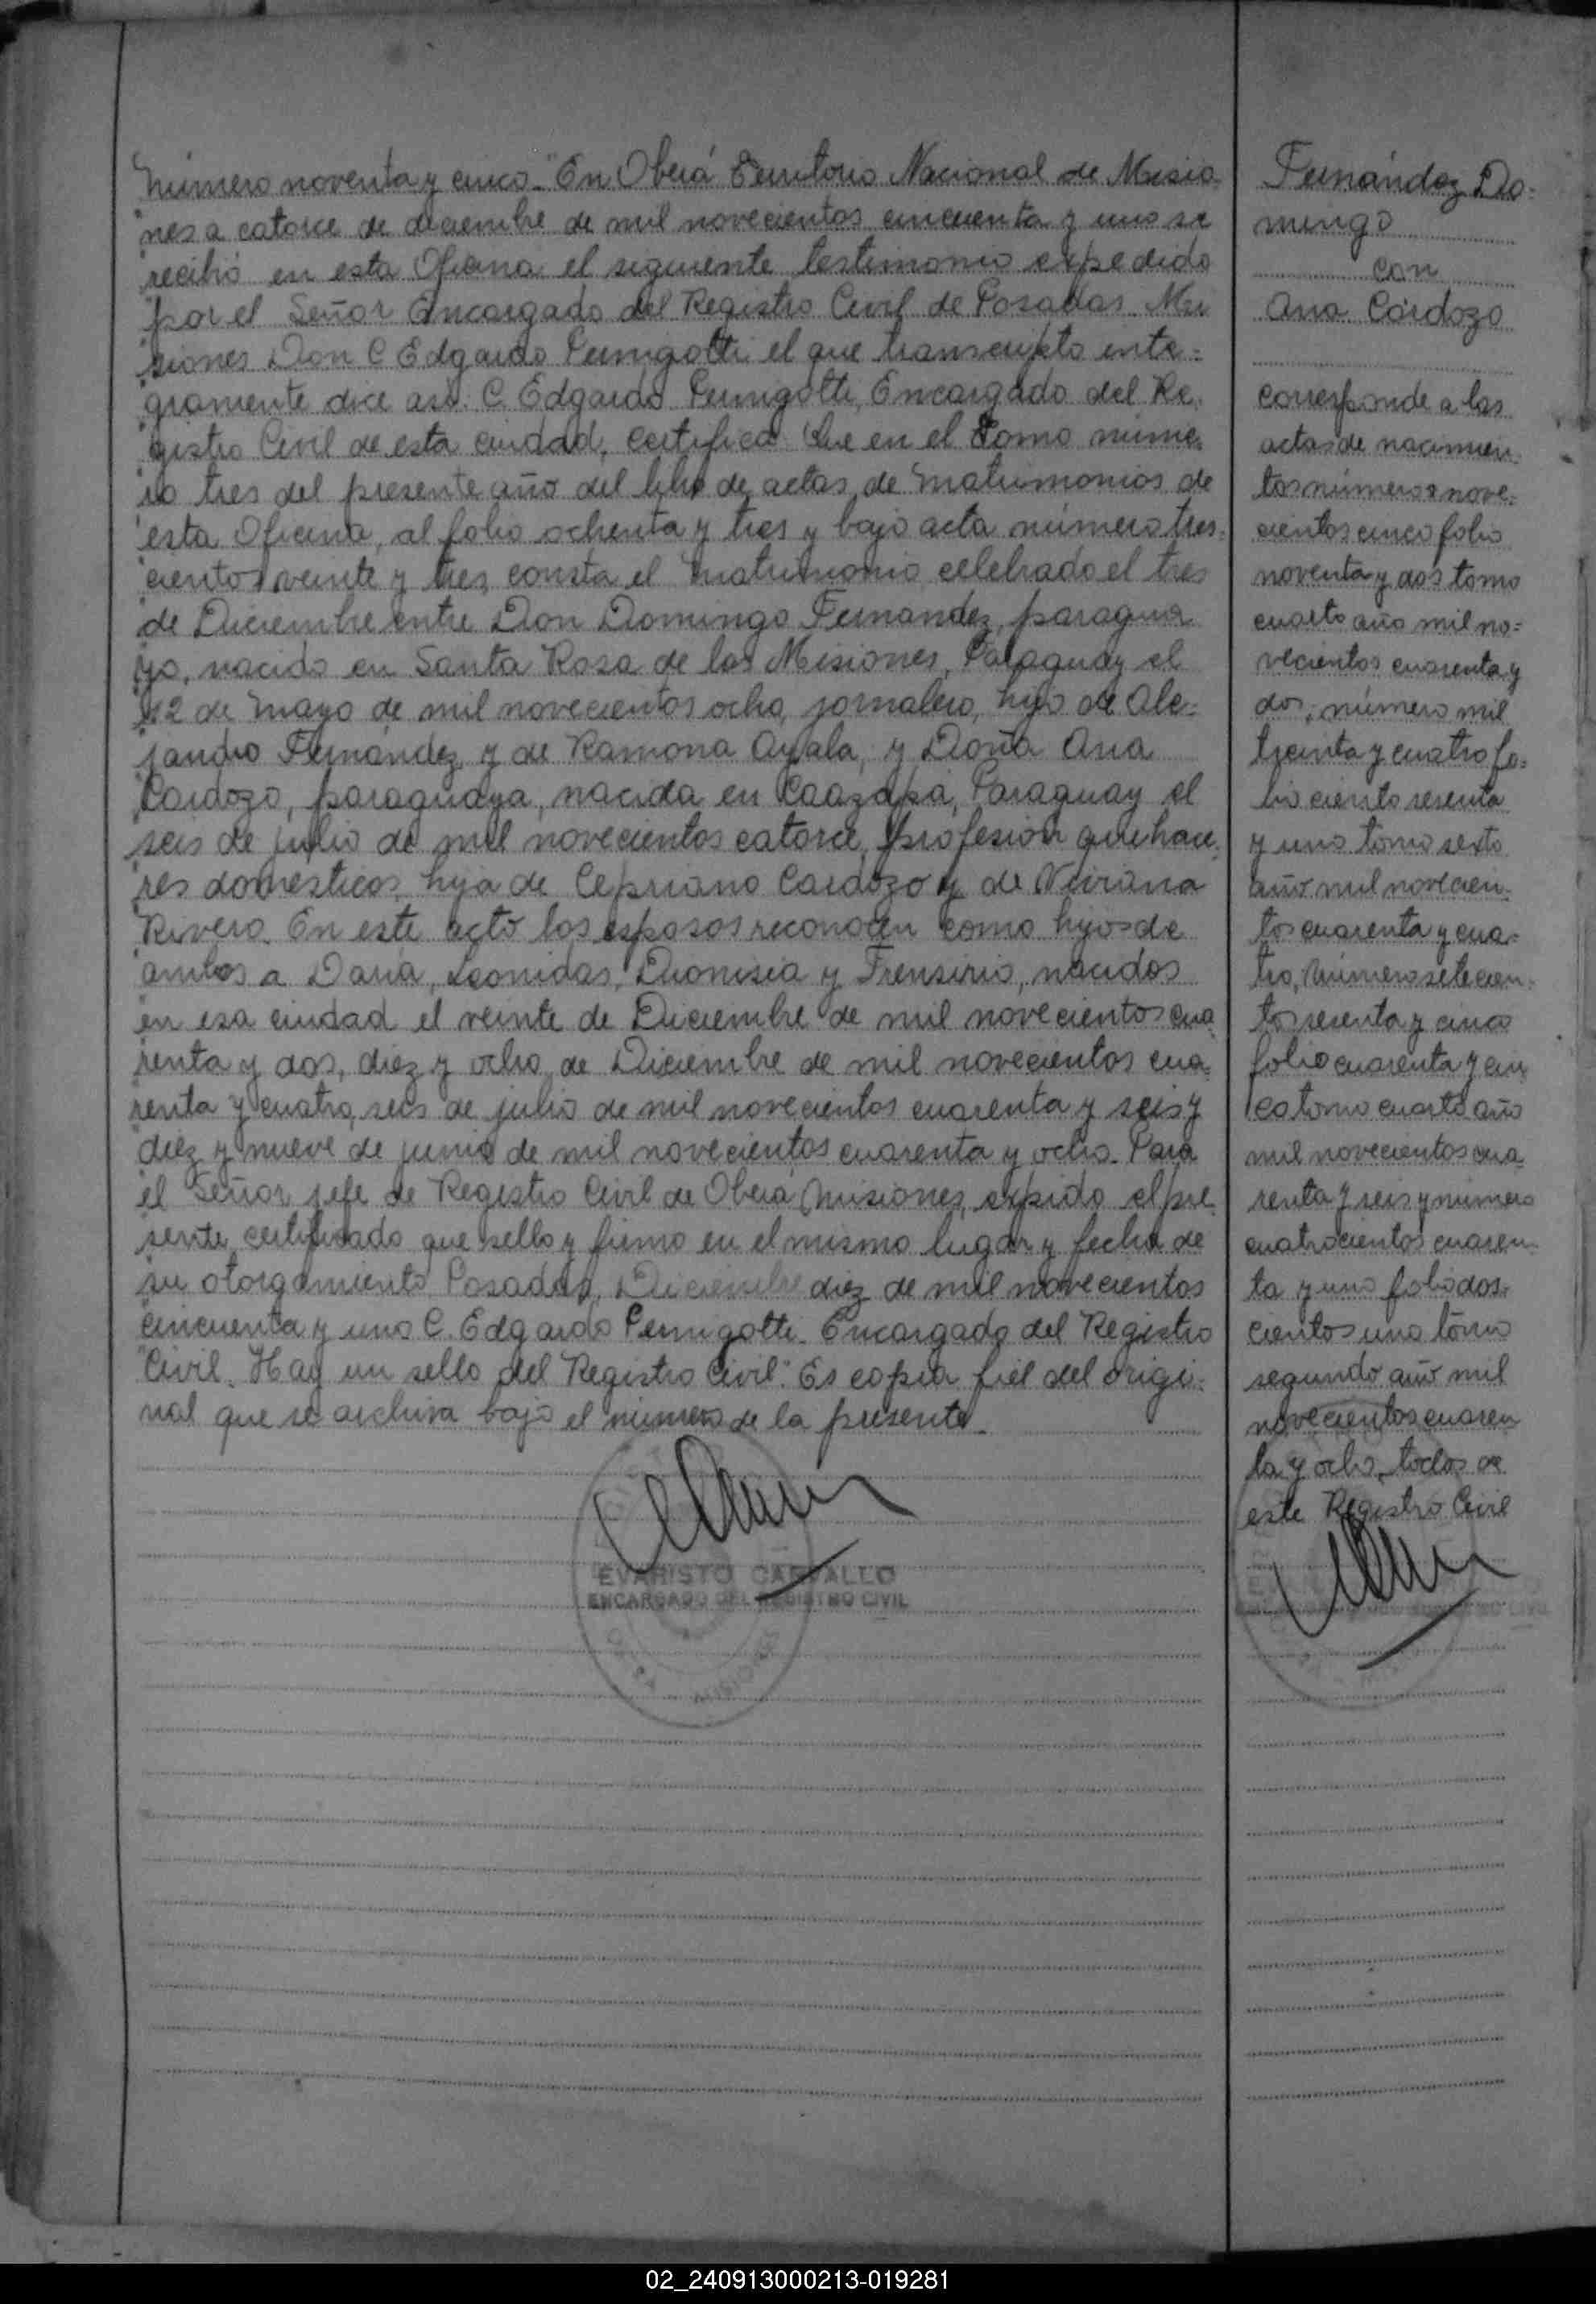 Número noventa y cinco "En Oberá Territorio Nacional de Misio-
nes a catorce de diciembre de mil novecientos cincuenta y uno se
recibió en esta Oficina el siguiente testimonio expedido
por el Señor Encargado del Registro Civil de Posadas Mi
siones Don C Edgardo Pernigotti el que transcripto inte=
gramente dice así: C. Edgardo Pernigotti, Encargado del Re
gistro Civil de esta ciudad, certifica Que en el Tomo núme
ro tres del presente año del libro de actas de matrimonios de
esta Oficina, al folio ochenta y tres y bajo acta número tres=
cientos veinte y tres, consta el matrimonio celebrado el tres
de Diciembre entre Don Domingo Fernandez, paragua
yo, nacido en Santa Rosa de las Misiones, Paraguay el
12 de mayo de mil novecientos ocho, jornalero, hijo de Ale=
jandro Fernández y de Ramona Ayala, y Doña Ana
Cardozo, paraguaya, nacida en Caazapá, Paraguay el
seis de julio de mil novecientos catorce, profesión quehace
res domesticos, hija de Cepriano Cardozo y de Viviana
Rivero. En este acto los esposos reconocen como hijos de
ambos a Daria, Leonidas, Dionisia y Trensirio, nacidos
en esa ciudad el veinte de Diciembre de mil novecientos cua
renta y dos, diez y ocho de Diciembre de mil novecientos cua
renta y cuatro, seis de julio de mil novecientos cuarenta y seis y
diez y nueve de junio de mil novecientos cuarenta y ocho. Para
el Señor jefe de Registro Civil de Oberá, Misiones, expido el pre
sente certificado que sello y firmo en el mismo lugar y fecha de
su otorgamiento Posadas, Diciembre diez de mil novecientos
cincuenta y uno C. Edgardo Pernigotti. Encargado del Registro
Civil. Hay un sello del Registro Civil". Es copia fiel del origi-
nal que se archiva bajo el número de la presente.
EVARISTO CARVALLO
ENCARGADO DEL REGISTRO CIVIL
MISIONES
Fernández Do-
mingo
con
Ana Cardozo
corresponde a las
actas de nacimien
tos números nove=
cientos cinco folio
noventa y dos tomo
cuarto año mil no=
vecientos cuarenta y
dos; número mil
treinta y cuatro fo=
lio ciento sesenta
y uno tomo sexto
año mil novecien-
tos cuarenta y cua=
tro, número setecien-
tos sesenta y cinco
folio cuarenta y cin
co tomo cuarto año
mil novecientos cua
renta y seis y número
cuatrocientos cuaren-
ta y uno folio dos=
cientos uno tomo
segundo año mil
novecientos cuaren
ta y ocho, todos de
este Registro Civil
02_240913000213-019281